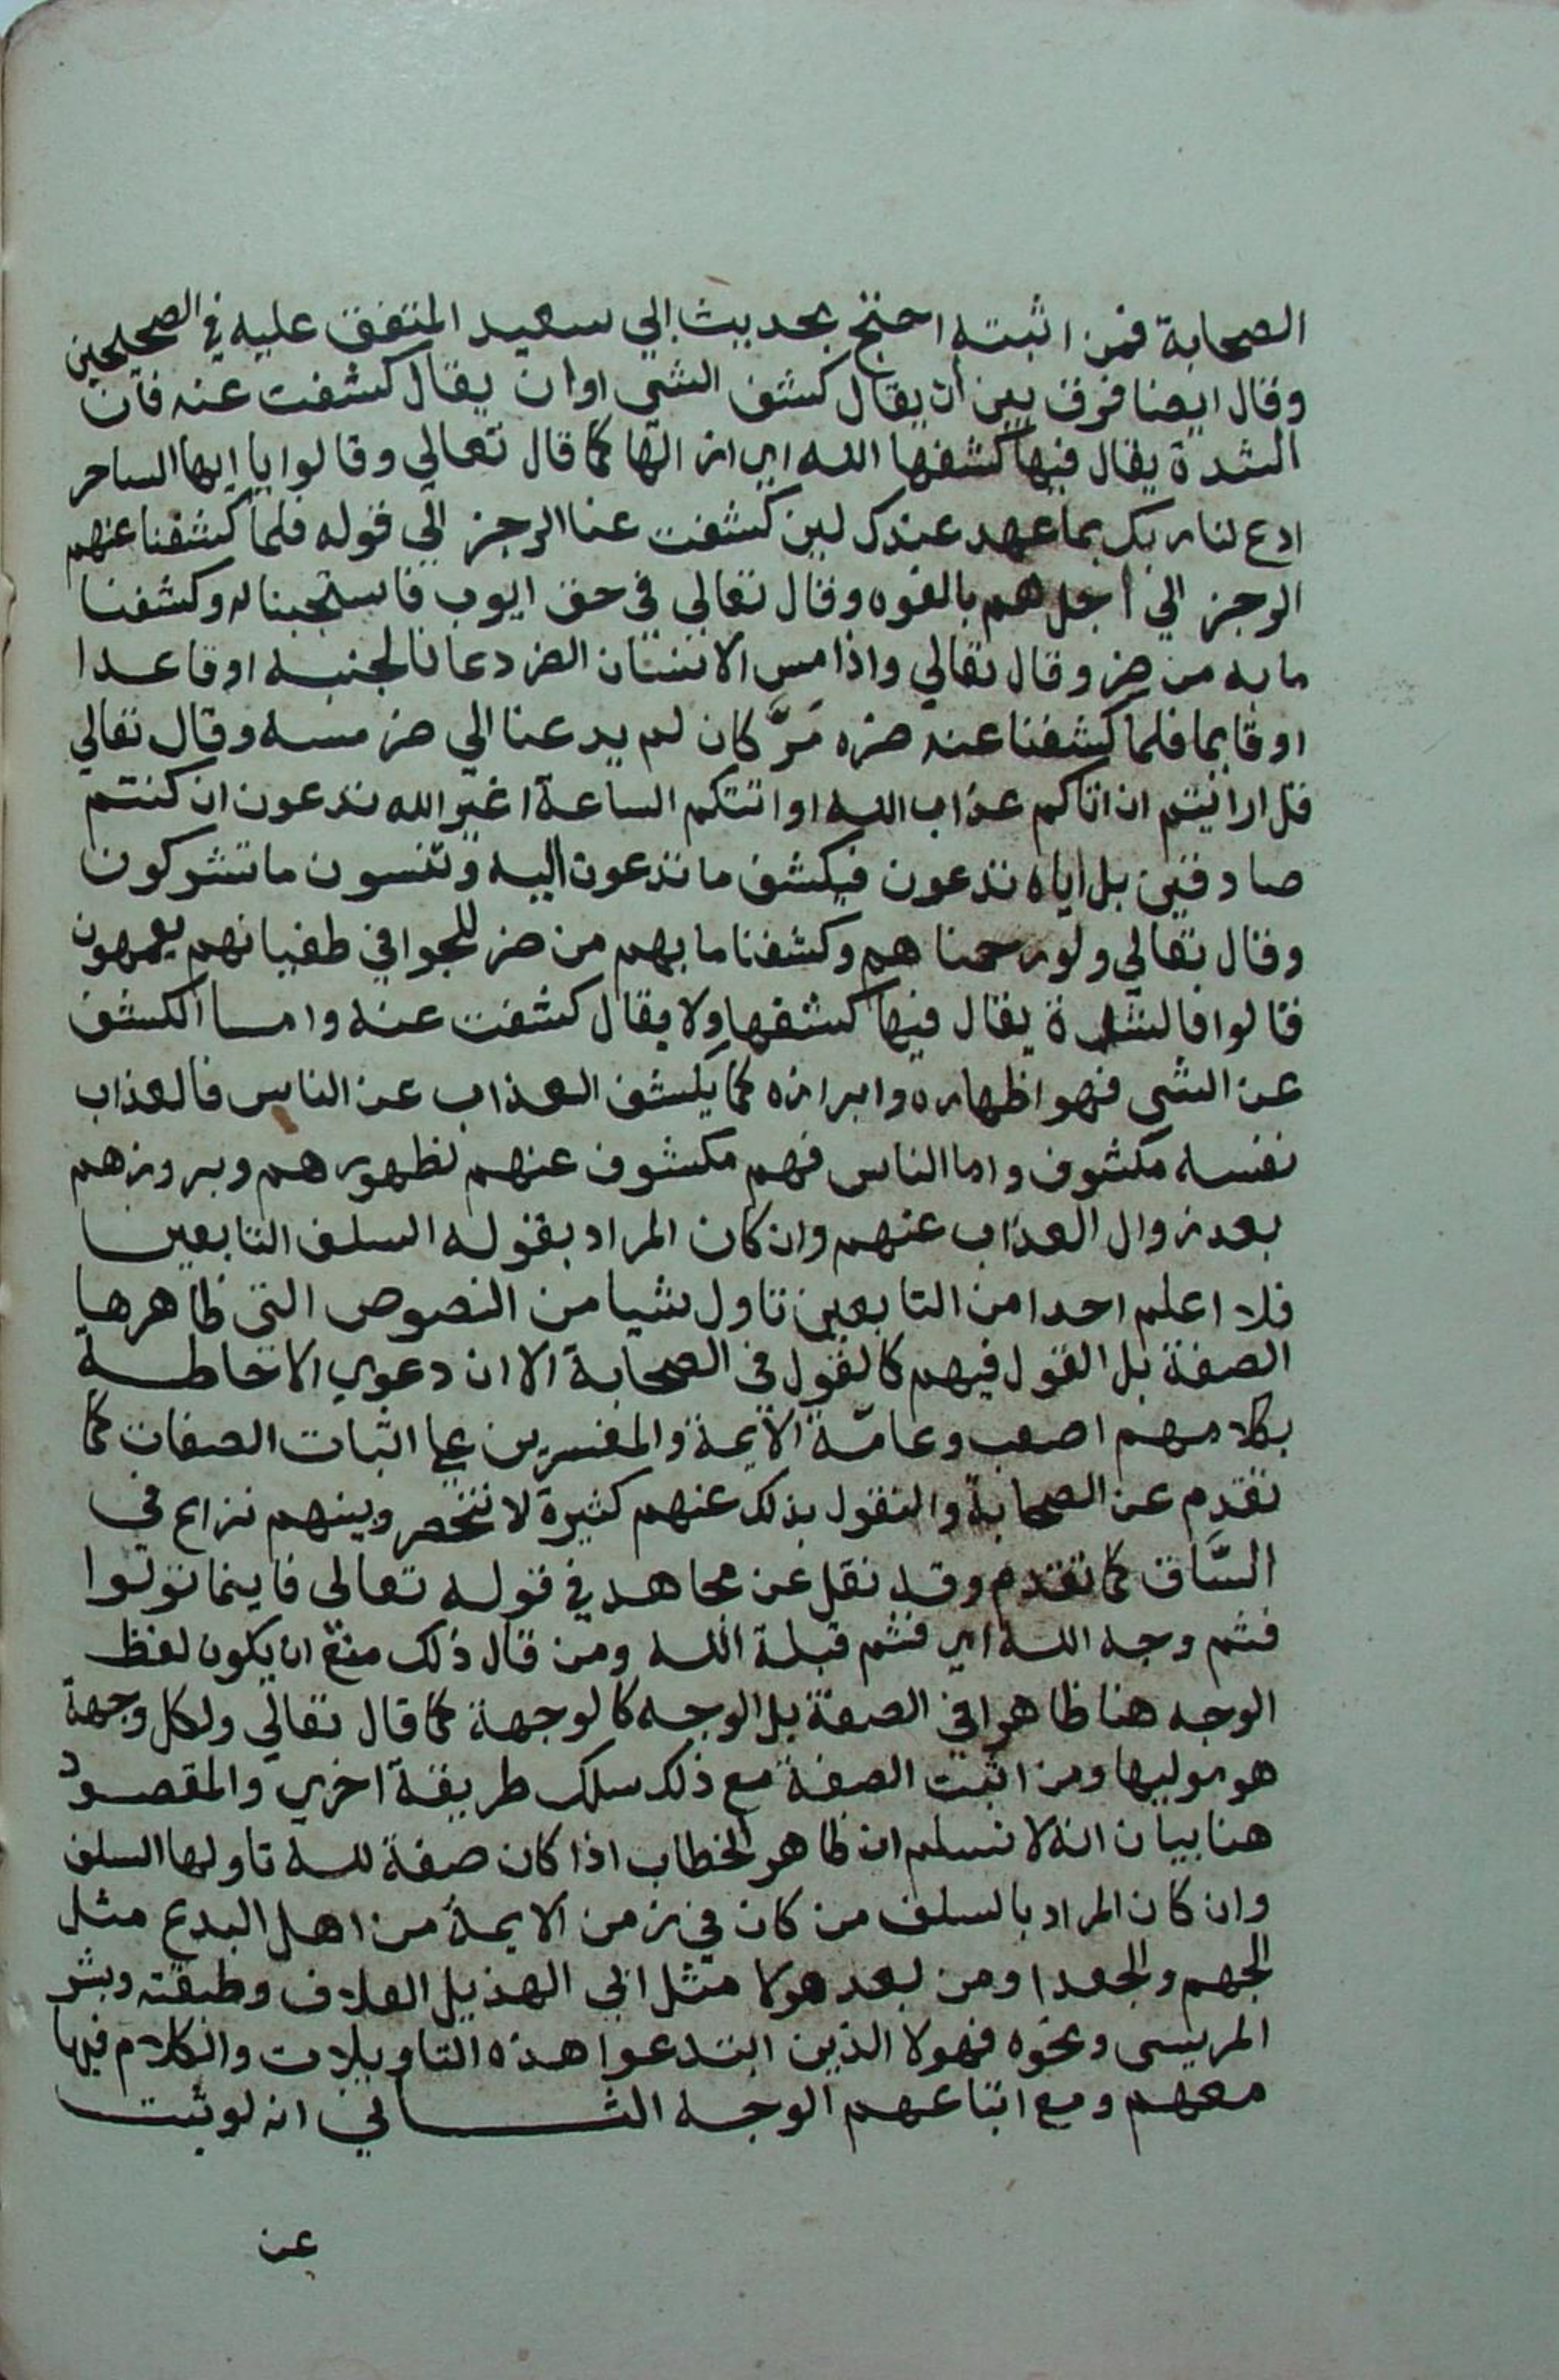 الصحابة فمن اثبته احتج بحديث ابي سعيد المتفق عليه في الصحيحين
وقال ايضا فرق بين ان يقال كشف الشي اوان يقال كشفت عنه فان
الشدة يقال فيها كشفها الله اي ازالها كما قال تعالي وقالوا يا ايها الساحر
ادع لنا ربك بما عهد عندك لين كشفت عنا الرجز الي قوله فلما كشفنا عنهم
الرجز الي اجل هم بالغوه وقال تعالي في حق ايوب فاستجبنا له وكشفنا
ما به من ضر وقال تعالي واذا مس الانسان الضر دعانا لجنبه او قاعدا
او قايما فلما كشفنا عنه ضره مَرَّ كان لم يدعنا الي ضر مسه وقال تعالي
قل ارائيتم ان اتاكم عذاب الله او اتتكم الساعة اغير الله تدعون ان كنتم
صادقين بل اياه تدعون فيكشف ما تدعون اليه وتنسون ما تشركون
وقال تعالي ولو رحمنا هم وكشفنا ما بهم من ضر للجوا في طغيانهم يعمهون
قالوا فالشدة يقال فيها كشفها ولا يقال كشفت عنه واما الكشف
عن الشي فهو اظهاره وابرازه كما يكشف العذاب عن الناس فالعذاب
نفسه مكشوف واما الناس فهم مكشوف عنهم لظهورهم وبروزهم
بعد زوال العذاب عنهم وان كان المراد بقوله السلف التابعين
فلا اعلم احدا من التابعين تاول شيا من النصوص التي ظاهرها
الصفة بل القول فيهم كالقول في الصحابة الا ان دعوي الاحاطة
بكلامهم اصعب وعامّة الايمة والمفسرين علي اثبات الصفات كما
تقدم عن الصحابة والنقول بذلك عنهم كثيرة لا تنحصر وبينهم نزاع في
السَّاق كما تقدم وقد نقل عن مجاهد في قوله تعالى فاينما تولوا
فثم وجه الله اي فثم قبلة الله ومن قال ذلك منع ان يكون لفظ
الوجه هنا ظاهرا في الصفة بل الوجه كالوجهة كما قال تعالي ولكل وجهة
هو موليها ومن اثبت الصفة مع ذلك سلك طريقة اخري والمقصود
هنا بيان انه لا نسلم ان ظاهر الخطاب اذا كان صفة لله تاولها السلف
وان كان المراد بالسلف من كان في زمن الايمة من اهل البدع مثل
الجهم والجعد او من بعد هولا مثل ابي الهذيل العلاف وطبقته وبشر
المريسى ونحوه فهولا الذين ابتدعوا هذه التاويلات والكلام فيها
معهم ومع اتباعهم الوجه الثاني انه لو ثبت
عن